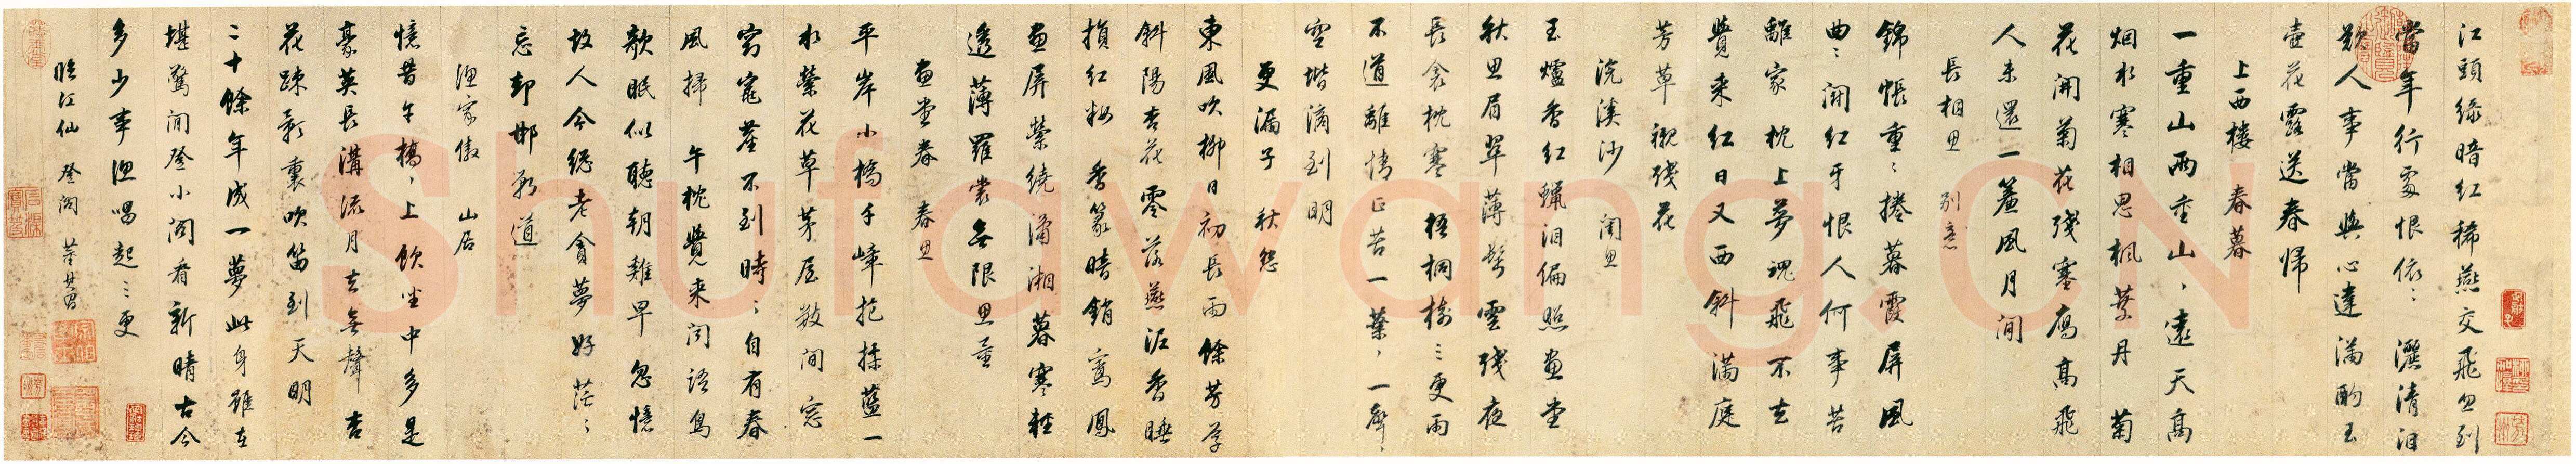 江頭綠暗紅稀燕交飛忽到
當年行處恨依〻灑清泪
歎人事當與心違滿酌玉
壺花露送春歸
上西樓 春暮
一重山兩重山〻遠天高
烟水寒相思楓葉丹 菊
花開菊花殘塞鴈高飛
人未還一簾風月閒
長相思 別意
錦帳重〻捲暮霞屏風
曲〻鬪紅牙恨人何事苦
離家枕上夢魂飛不去
覺來紅日又西斜滿庭
芳草襯殘花
浣溪沙 閨思
玉爐香紅蠟泪偏照畫堂
秋思眉翠薄鬂雲殘夜
長衾枕寒 梧桐樹三更雨
不道離情正苦一葉〻一聲〻
空堦滴到明
更漏子 秋怨
東風吹柳日初長雨餘芳草
斜陽杏花零落燕泥香睡
損紅粧 香篆暗銷鸞鳳
畫屏縈繞瀟湘暮寒輕
透薄羅裳無限思量
畫堂春 春思
平岸小橋千嶂抱揉藍一
水縈花草茅屋數間窓
窈窕塵不到時〻自有春
風掃 午枕覺來聞語鳥
欹眠似聽朝雞早忽憶
故人今總老貪夢好茫〻
忘却邯鄲道
漁家傲 山居
憶昔午橋〻上飲坐中多是
豪英長溝流月去無聲杏
花疎影裏吹笛到天明
二十餘年成一夢此身雖在
堪驚閒登小閣看新晴古今
多少事漁唱起三更
臨江仙 登閣 董其昌
Shufawang.CN